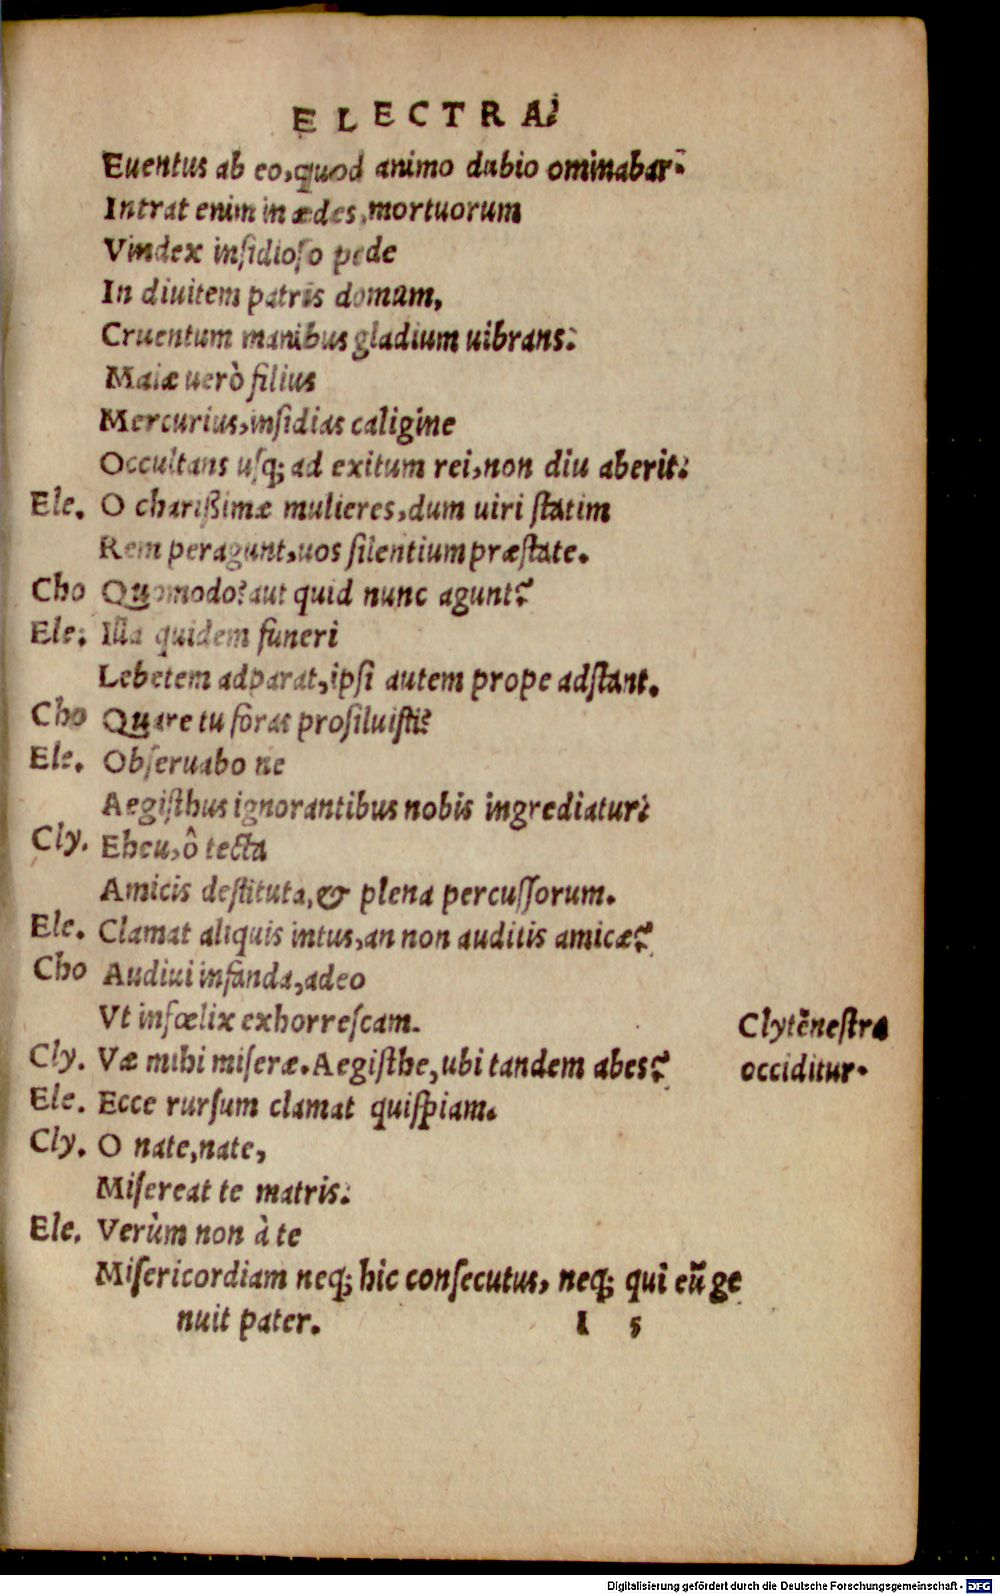 ELECTRA.
Euentus ab eo, quod animo dubio ominabar.
Intrat enim in ædes, mortuorum
Vindex insidioso pede
In diuitem patris domum,
Cruentum manibus gladium uibrans:
Maiæ uerò filius
Mercurius, insidias caligine
Occultans usq; ad exitum rei, non diu aberit.
Ele. O charißimæ mulieres, dum uiri statim
Rem peragunt, uos silentium præstate.
Cho Quomodo? aut quid nunc agunt?
Ele. Illa quidem funeri
Lebetem adparat, ipsi autem prope adstant.
Cho Quare tu foras prosiluisti?
Ele. Obseruabo ne
Aegisthus ignorantibus nobis ingrediatur.
Cly. Eheu, ô tecta
Amicis destituta, & plena percussorum.
Ele. Clamat aliquis intus, an non auditis amicæ?
Cho Audiui infanda, adeo
Vt infœlix exhorrescam.
Clytẽnestra
occiditur.
Cly. Væ mihi miseræ. Aegisthe, ubi tandem abes?
Ele. Ecce rursum clamat quispiam.
Cly. O nate, nate,
Misereat te matris.
Ele. Verùm non à te
Misericordiam neq; hic consecutus, neq; qui eũ ge
nuit pater.
I 5
Digitalisierung gefördert durch die Deutsche Forschungsgemeinschaft - DFG